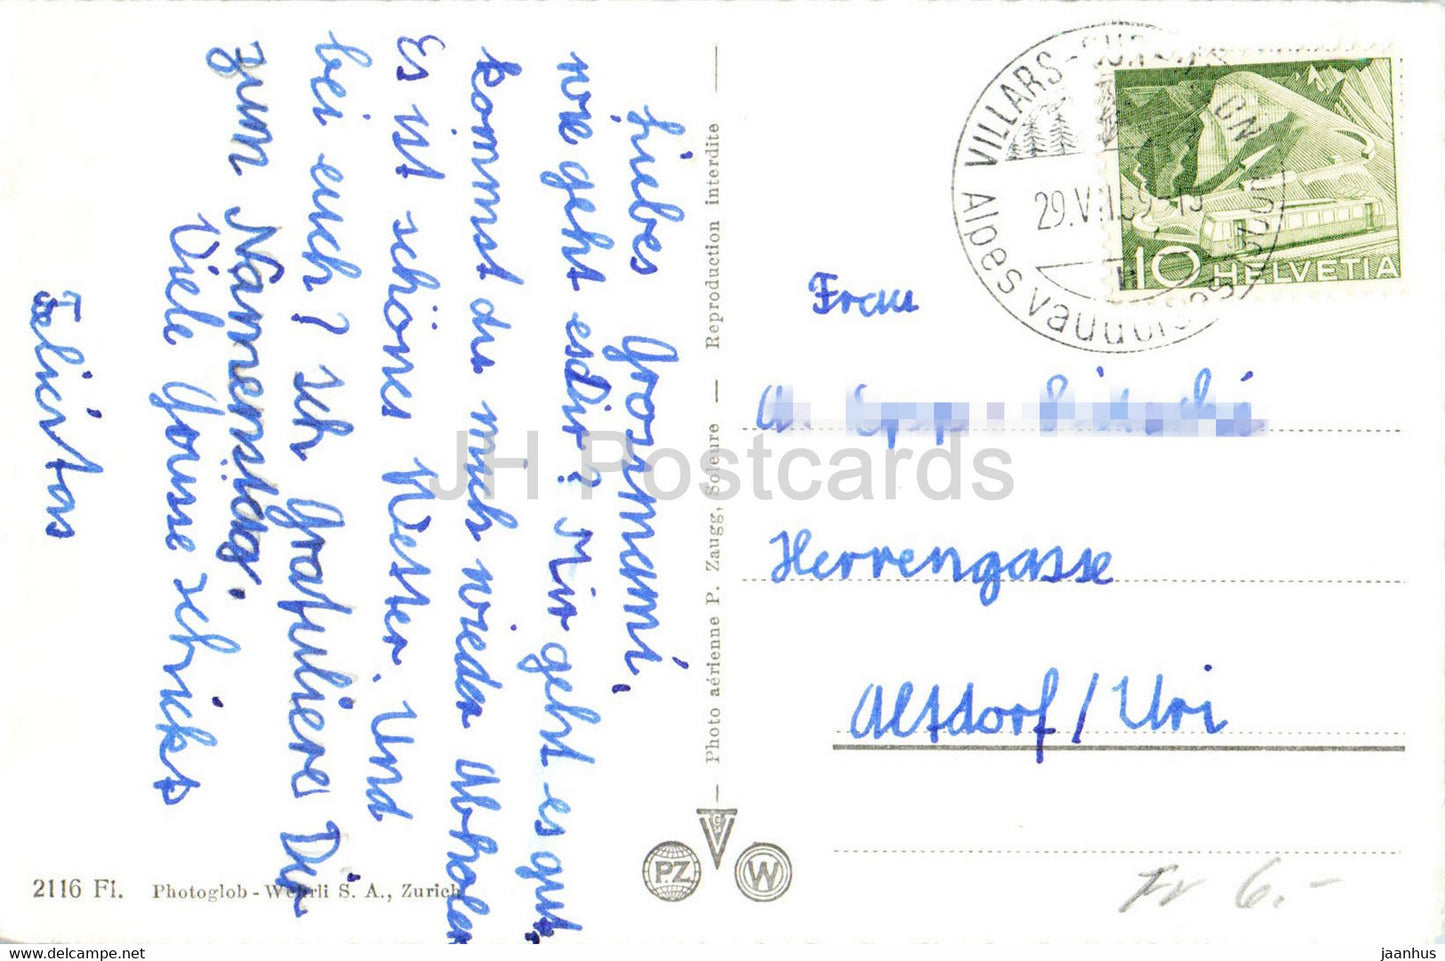 Liebes Grossmami,
wie geht es dir? Mir geht es gut.
kommst du mich wieder Abholen
Es ist schönes Wetter. Und
bei euch? Ich Gratuliere Dir
zum Namenstag.
Viele Grüsse schickt
Felicitas
Reproduction interdite
Photo aérienne P. Zaugg, Soleure
2116 Fl. Photoglob-Wehrli S. A., Zurich
P.Z
V
W
VILLARS-SUR-OLLON
Alpes vaudoises
10 HELVETIA
Frau
Herrengasse
Altdorf/Uri
Fr 6.-
JH Postcards
www.delcampe.net
jaanhus